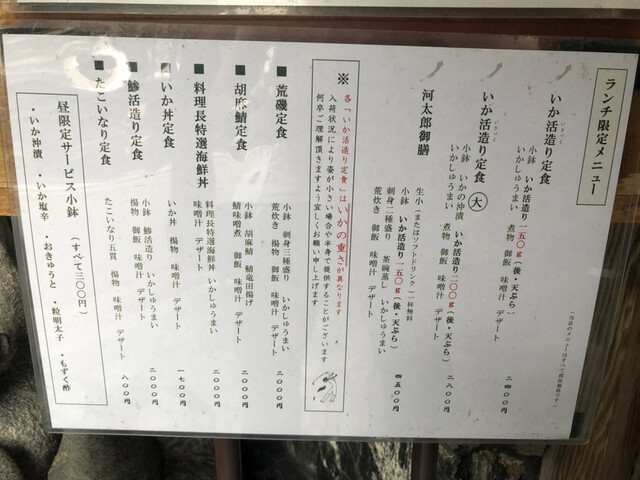 ランチ限定メニュー
いか活造り定食
いきづくり
小鉢 いか活造り一五〇g(後・天ぷら)
いかしゅうまい 煮物 御飯 味噌汁 デザート
二四〇〇円
いか活造り定食 大
いきづくり
小鉢 いかの沖漬 いか活造り二〇〇g(後・天ぷら)
いかしゅうまい 煮物 御飯 味噌汁 デザート
二八〇〇円
河太郎御膳
生小(またはソフトドリンク)一杯無料
小鉢 いか活造り一五〇g(後・天ぷら)
刺身二種盛り 茶碗蒸し いかしゅうまい
荒炊き 御飯 味噌汁 デザート
四五〇〇円
※
各「いか活造り定食」はいかの重さが異なります
入荷状況により姿が小さい場合や半身で提供することがございます
何卒ご理解頂きますよう宜しくお願い申し上げます
■荒磯定食
小鉢 刺身三種盛り いかしゅうまい
荒炊き 揚物 御飯 味噌汁 デザート
二〇〇〇円
■胡麻鯖定食
小鉢 胡麻鯖 鯖竜田揚げ
鯖味噌煮 御飯 味噌汁 デザート
二〇〇〇円
■料理長特選海鮮丼
料理長特選海鮮丼 いかしゅうまい
味噌汁 デザート
二〇〇〇円
■いか丼定食
いか丼 揚物 味噌汁 デザート
一七〇〇円
■鯵活造り定食
小鉢 鯵活造り いかしゅうまい
揚物 御飯 味噌汁 デザート
二〇〇〇円
■たこいなり定食
たこいなり五貫 揚物 味噌汁 デザート
八〇〇円
昼限定サービス小鉢 (すべて三〇〇円)
・いか沖漬 ・いか塩辛 ・おきゅうと ・粒明太子 ・もずく酢